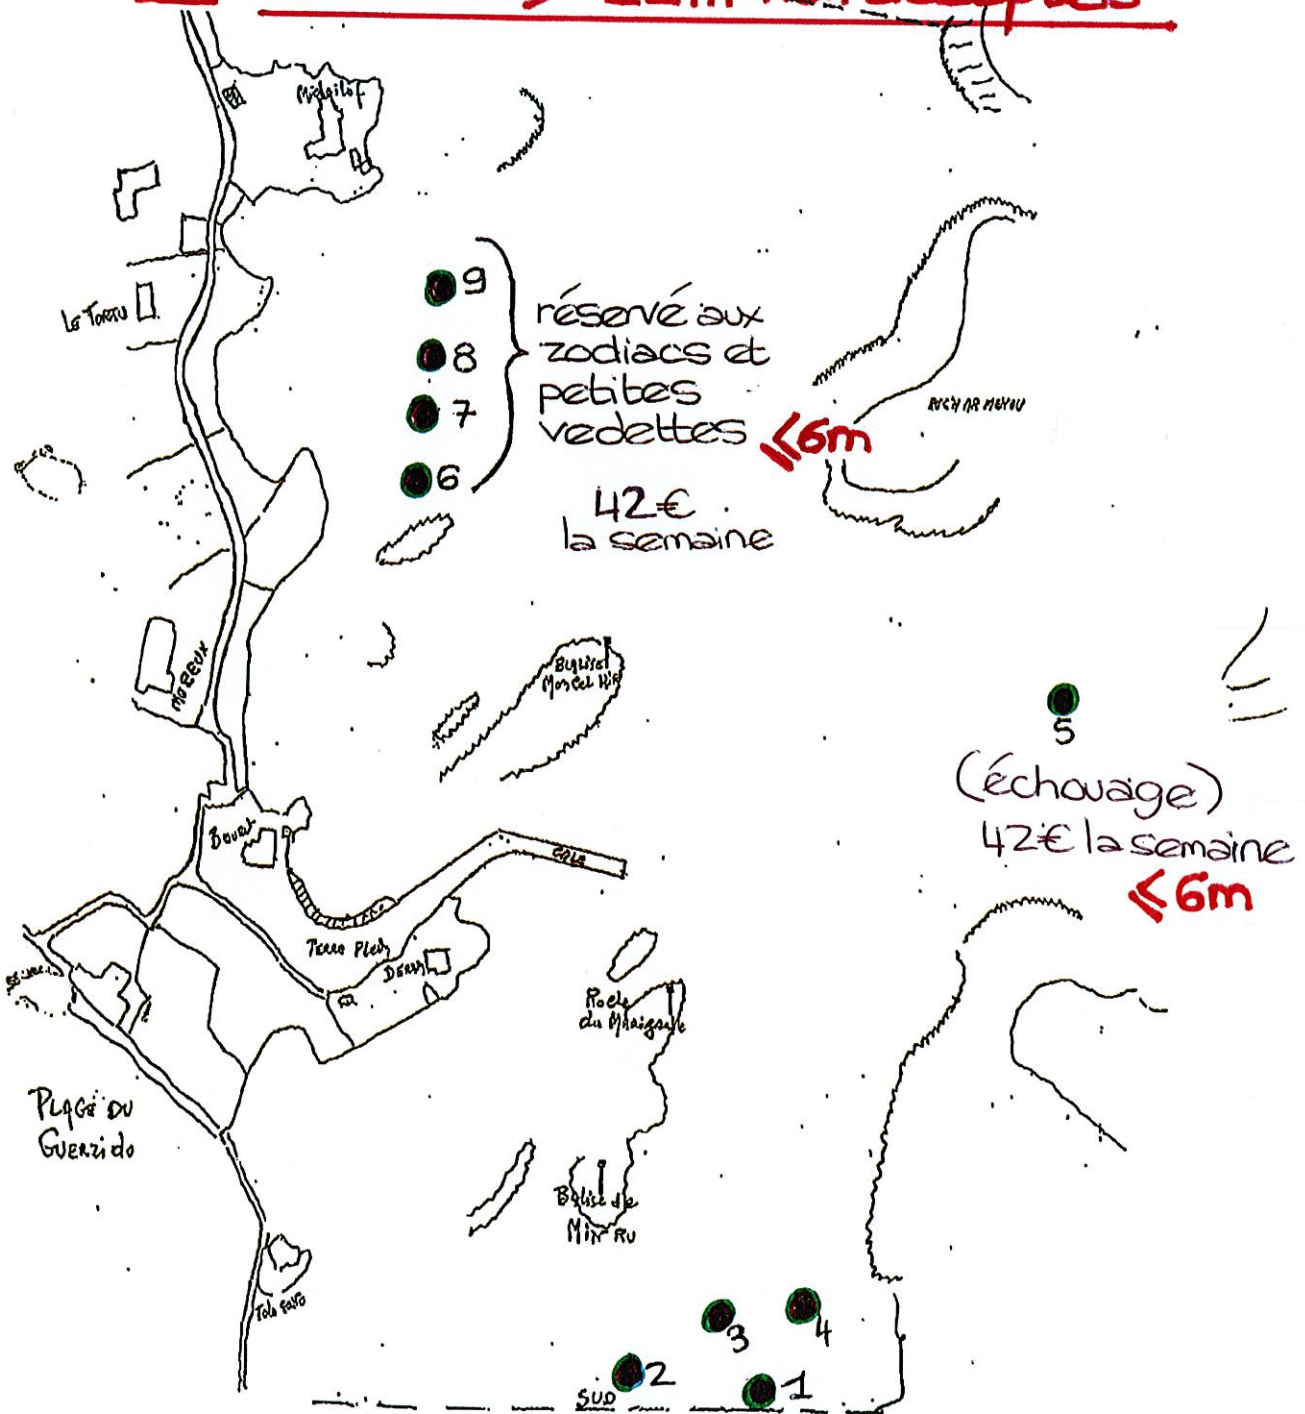 9
8
7
6
réservé aux
zodiacs et
petites
vedettes
≤6m
42€
la semaine
Le Tortu
MOREUX
Balise
5
(échouage)
42€ la semaine
≤6m
Bouet
CALE
Terre Plein
Roche
du
PLAGE DU
GUERZIDO
Balise de
MIN RU
3
4
2
1
SUD